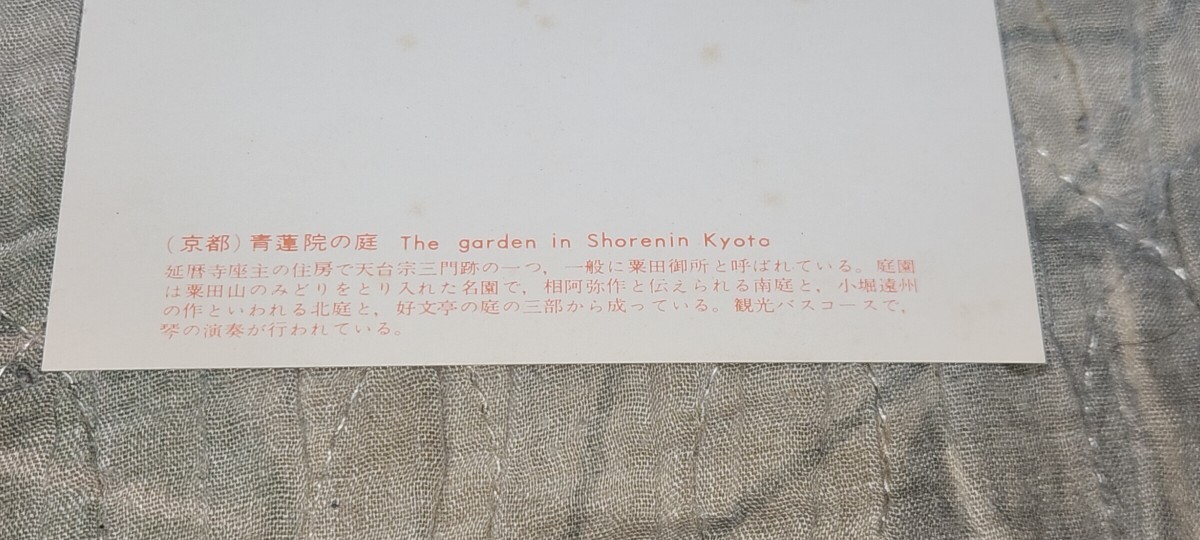 (京都)青蓮院の庭 The garden in Shorenin Kyoto
延暦寺座主の住房で天台宗三門跡の一つ，一般に粟田御所と呼ばれている。庭園
は粟田山のみどりをとり入れた名園で，相阿弥作と伝えられる南庭と，小堀遠州
の作といわれる北庭と，好文亭の庭の三部から成っている。観光バスコースで，
琴の演奏が行われている。